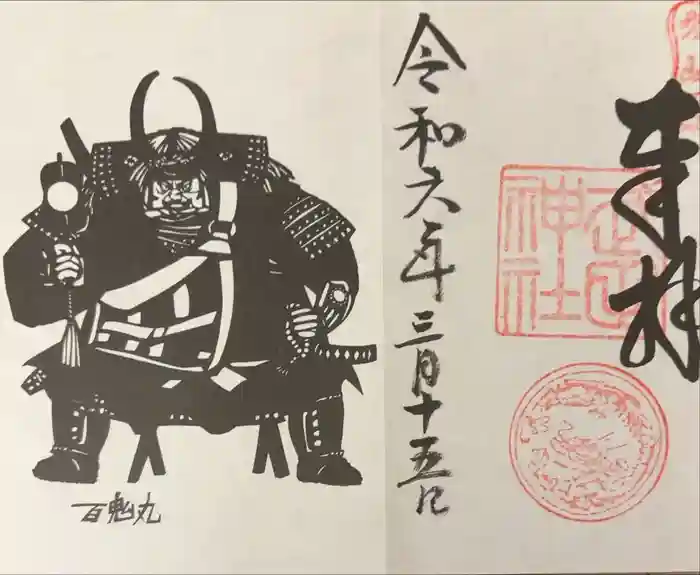 奉拝
神社
令和六年三月十五日
百鬼丸